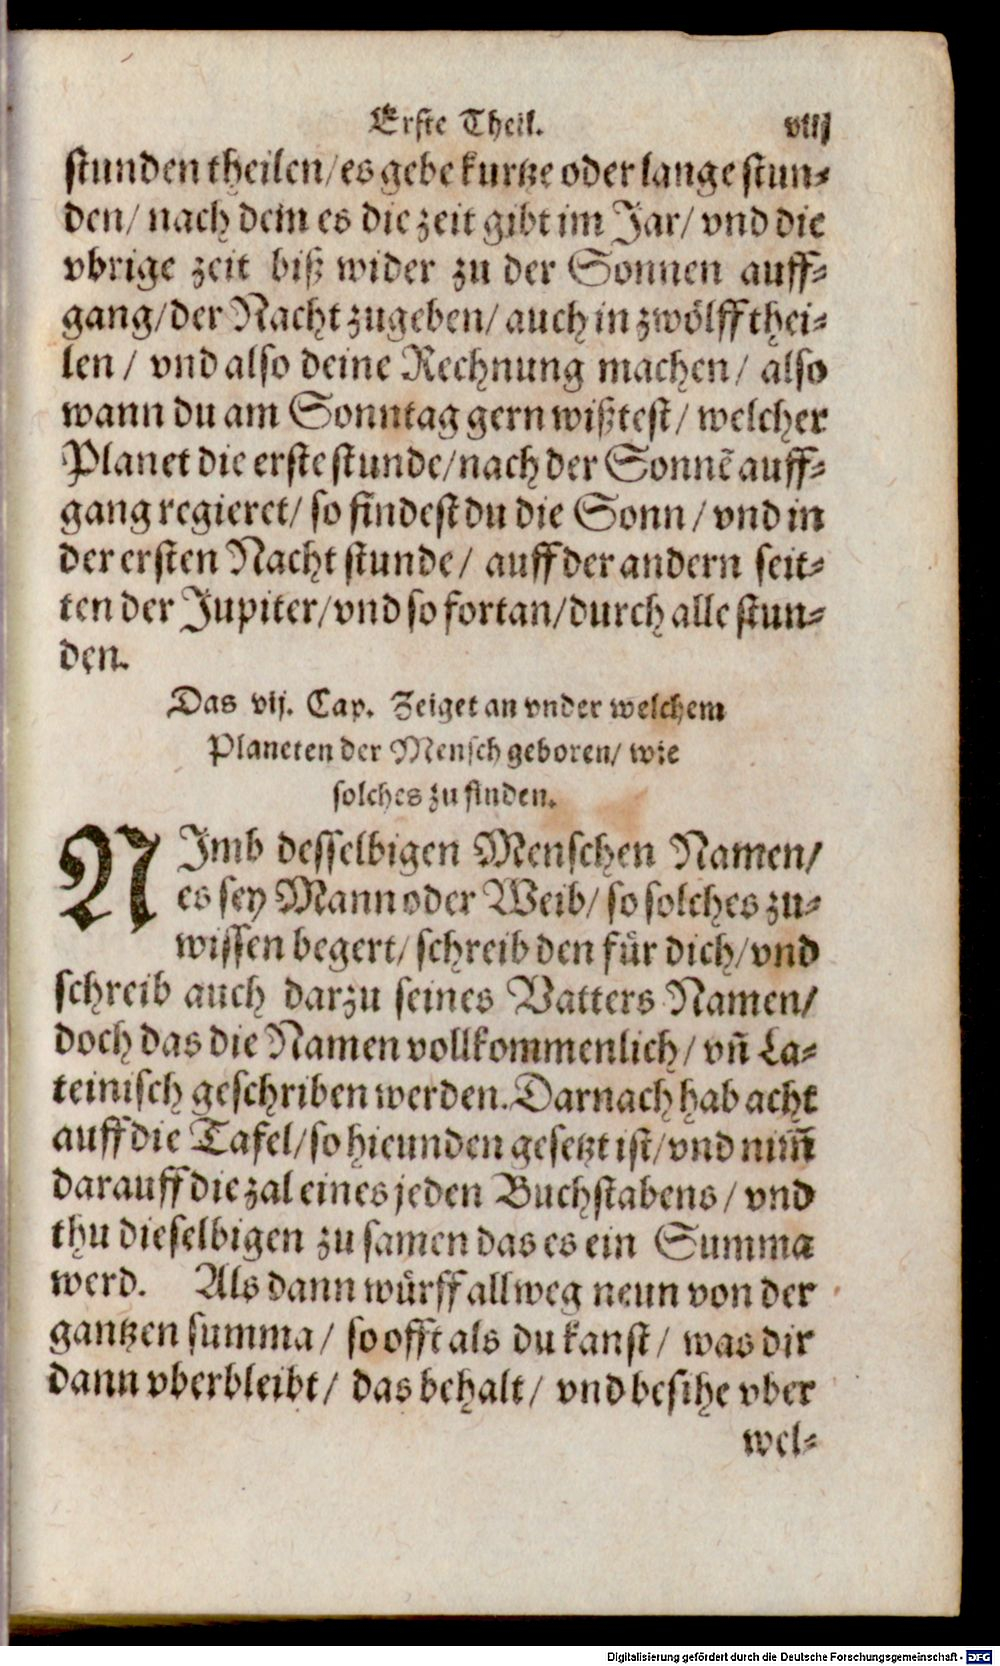 Erste Theil. viij
stunden theilen/ es gebe kurtze oder lange stun⸗
den/ nach dem es die zeit gibt im Jar/ vnd die
vbrige zeit biß wider zu der Sonnen auff⸗
gang/ der Nacht zugeben/ auch in zwölff thei⸗
len/ vnd also deine Rechnung machen/ also
wann du am Sonntag gern wißtest/ welcher
Planet die erste stunde/ nach der Sonnẽ auff⸗
gang regieret/ so findest du die Sonn/ vnd in
der ersten Nacht stunde/ auff der andern seit⸗
ten der Jupiter/ vnd so fortan/ durch alle stun⸗
den.
Das vij. Cap. Zeiget an vnder welchem
Planeten der Mensch geboren/ wie
solches zu finden.
NImb desselbigen Menschen Namen/
es sey Mann oder Weib/ so solches zu⸗
wissen begert/ schreib den für dich/ vnd
schreib auch darzu seines Vatters Namen/
doch das die Namen vollkommenlich/ vñ La⸗
teinisch geschriben werden. Darnach hab acht
auff die Tafel/ so hieunden gesetzt ist/ vnd nim̃
darauff die zal eines jeden Buchstabens/ vnd
thu dieselbigen zu samen das es ein Summa
werd. Als dann würff allweg neun von der
gantzen summa/ so offt als du kanst/ was dir
dann vberbleibt/ das behalt/ vnd besihe vber
wel⸗
Digitalisierung gefördert durch die Deutsche Forschungsgemeinschaft - DFG